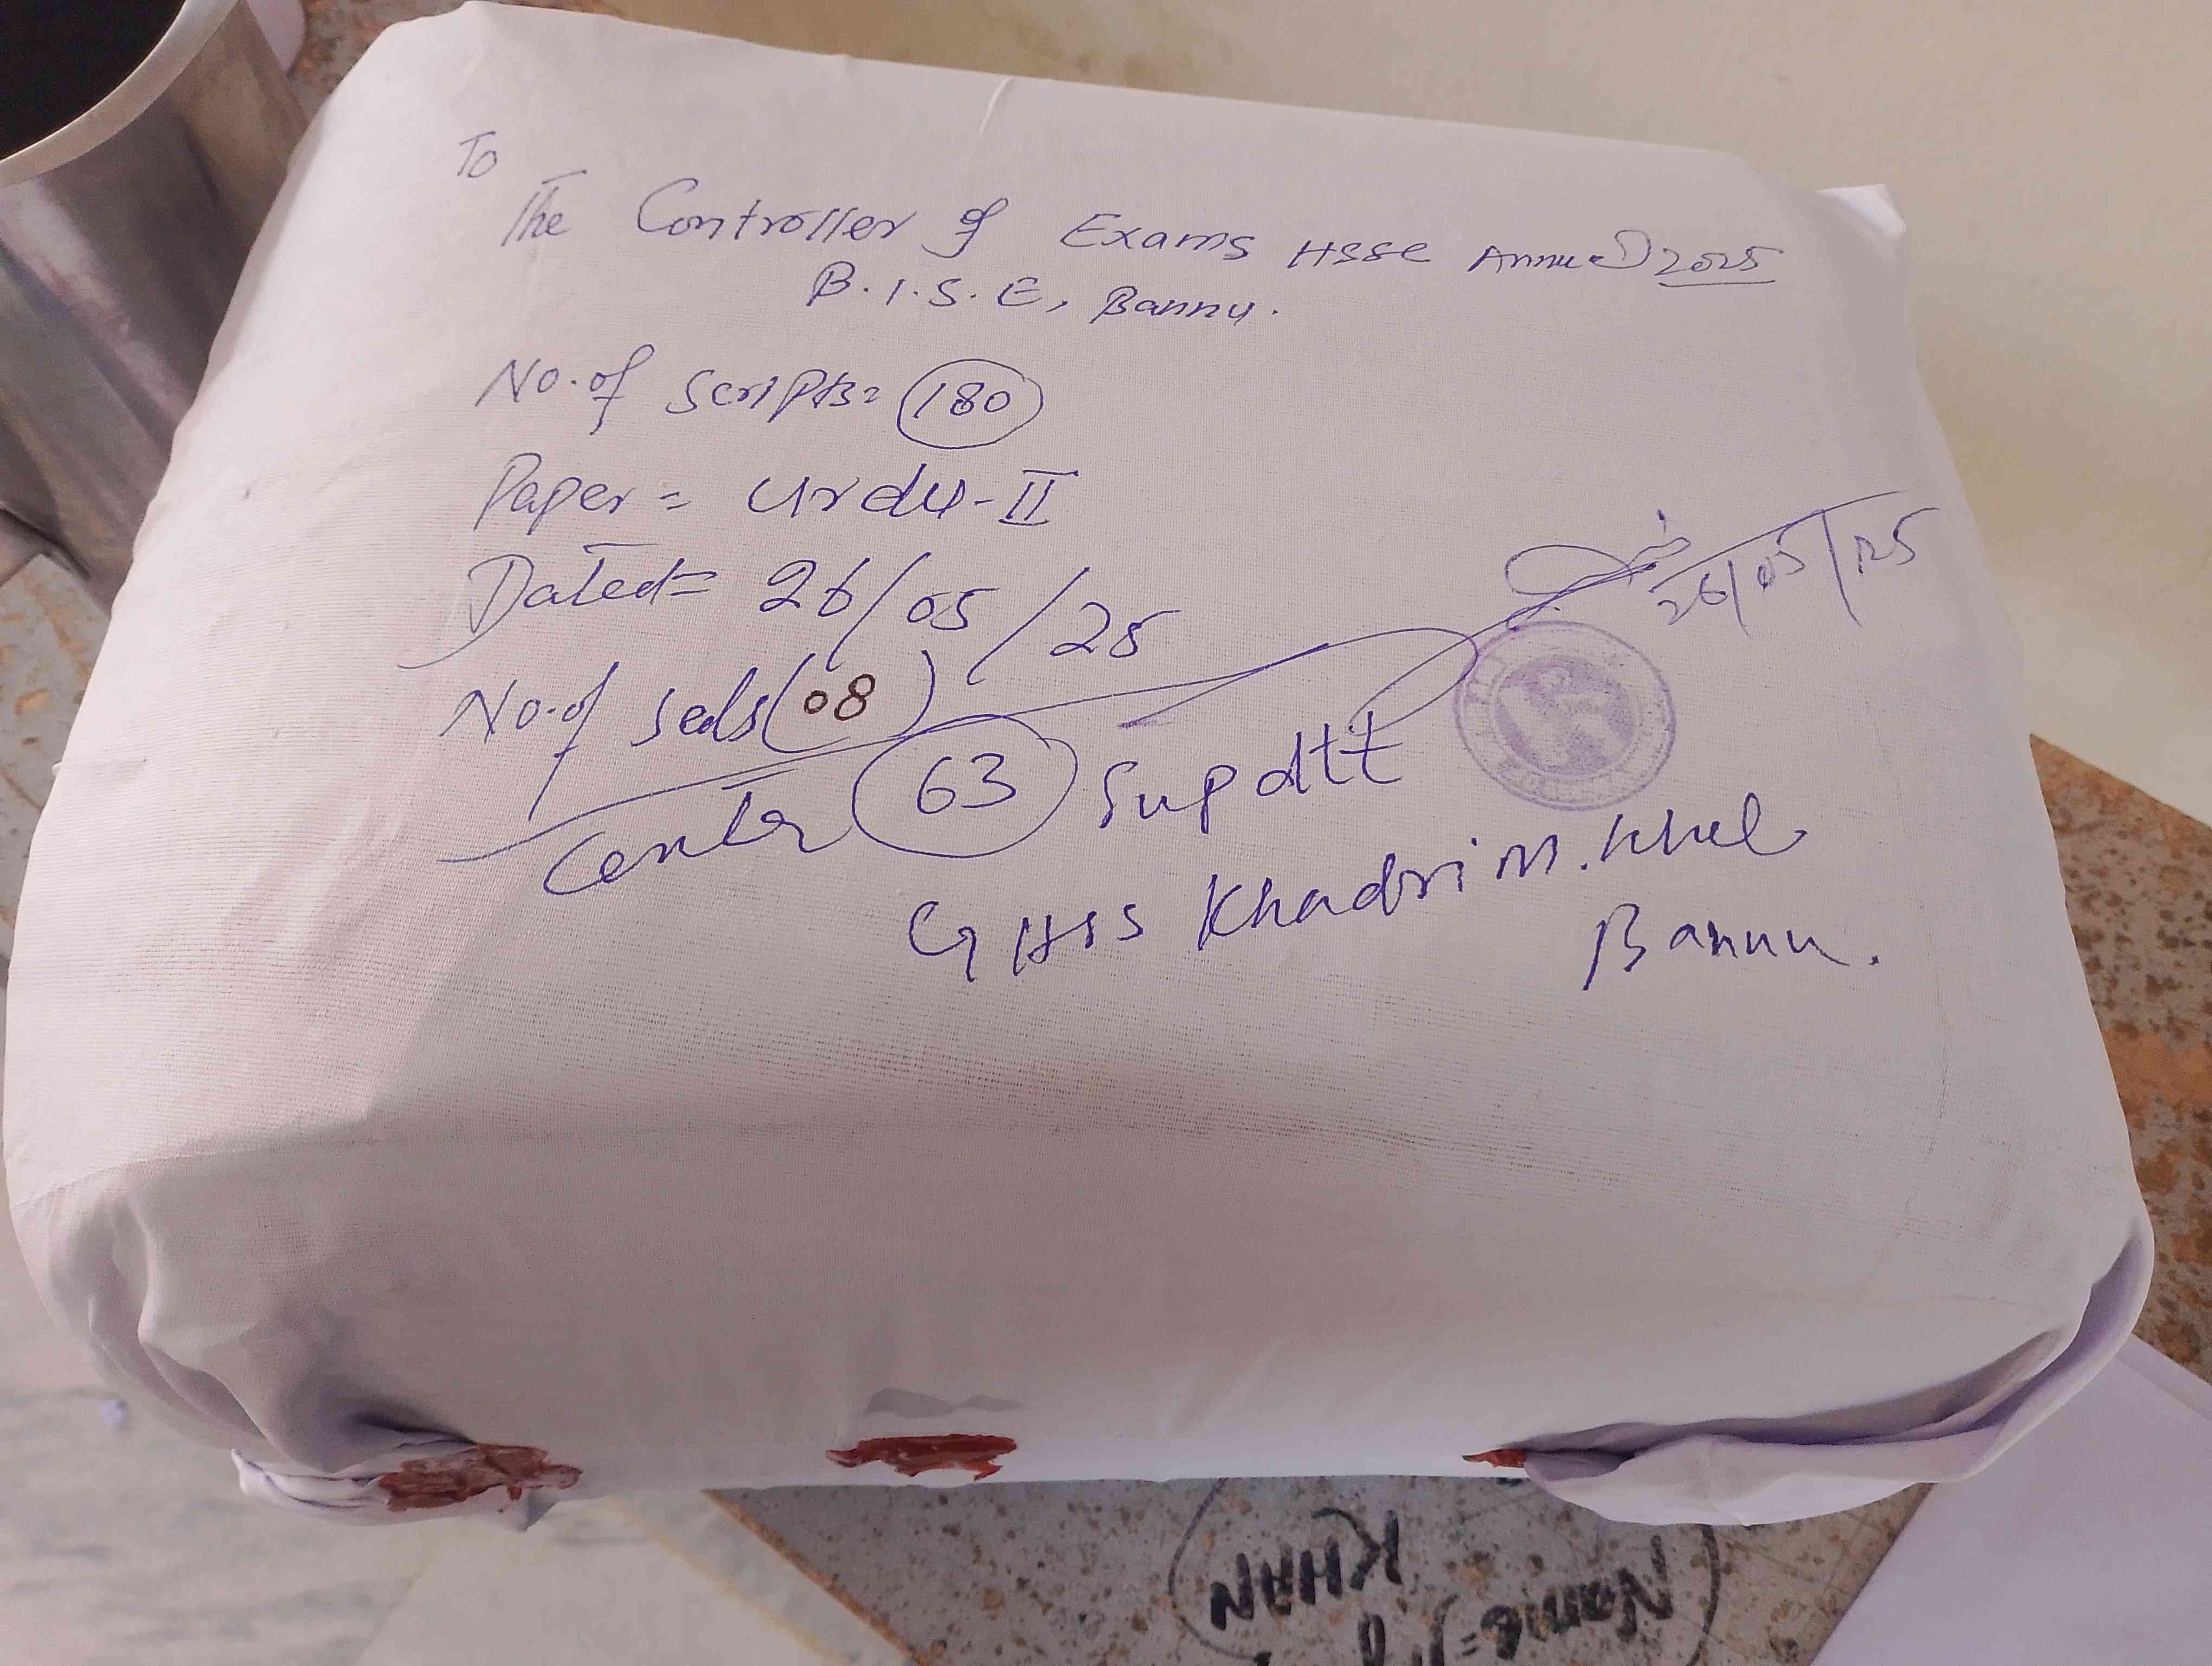 To
The Controller of Exams HSSC Annual 2025
B.I.S.E, Bannu.
No. of Scripts= 180
Paper = Urdu-II
Dated= 26/05/25
No. of Seals (08)
26/05/25
Center 63 Supdtt
GHSS Khadri M. Khel
Bannu.
Name=
KHAN